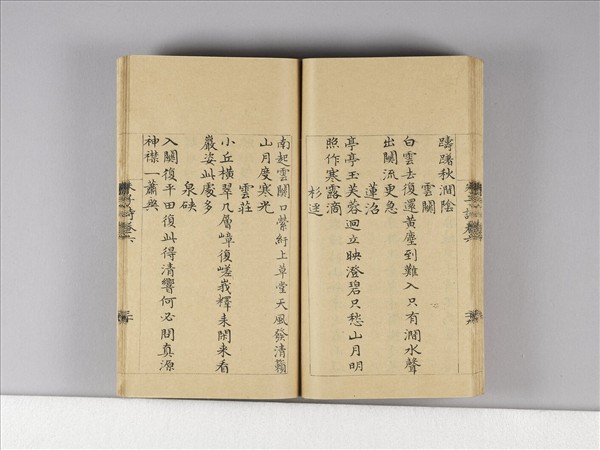 躊躇秋澗陰
雲關
白雲去復還黃塵到難入只有澗水聲
出關流更急
蓮沼
亭亭玉芙蓉迥立映澄碧只愁山月明
照作寒露滴
杉逕
南起雲關口縈紆上草堂天風發清籟
山月度寒光
雲莊
小丘橫翠几層嶂復嵯峨釋耒閒來看
巖姿此處多
泉硤
入關復平田復此得清響何必問真源
神襟一蕭爽